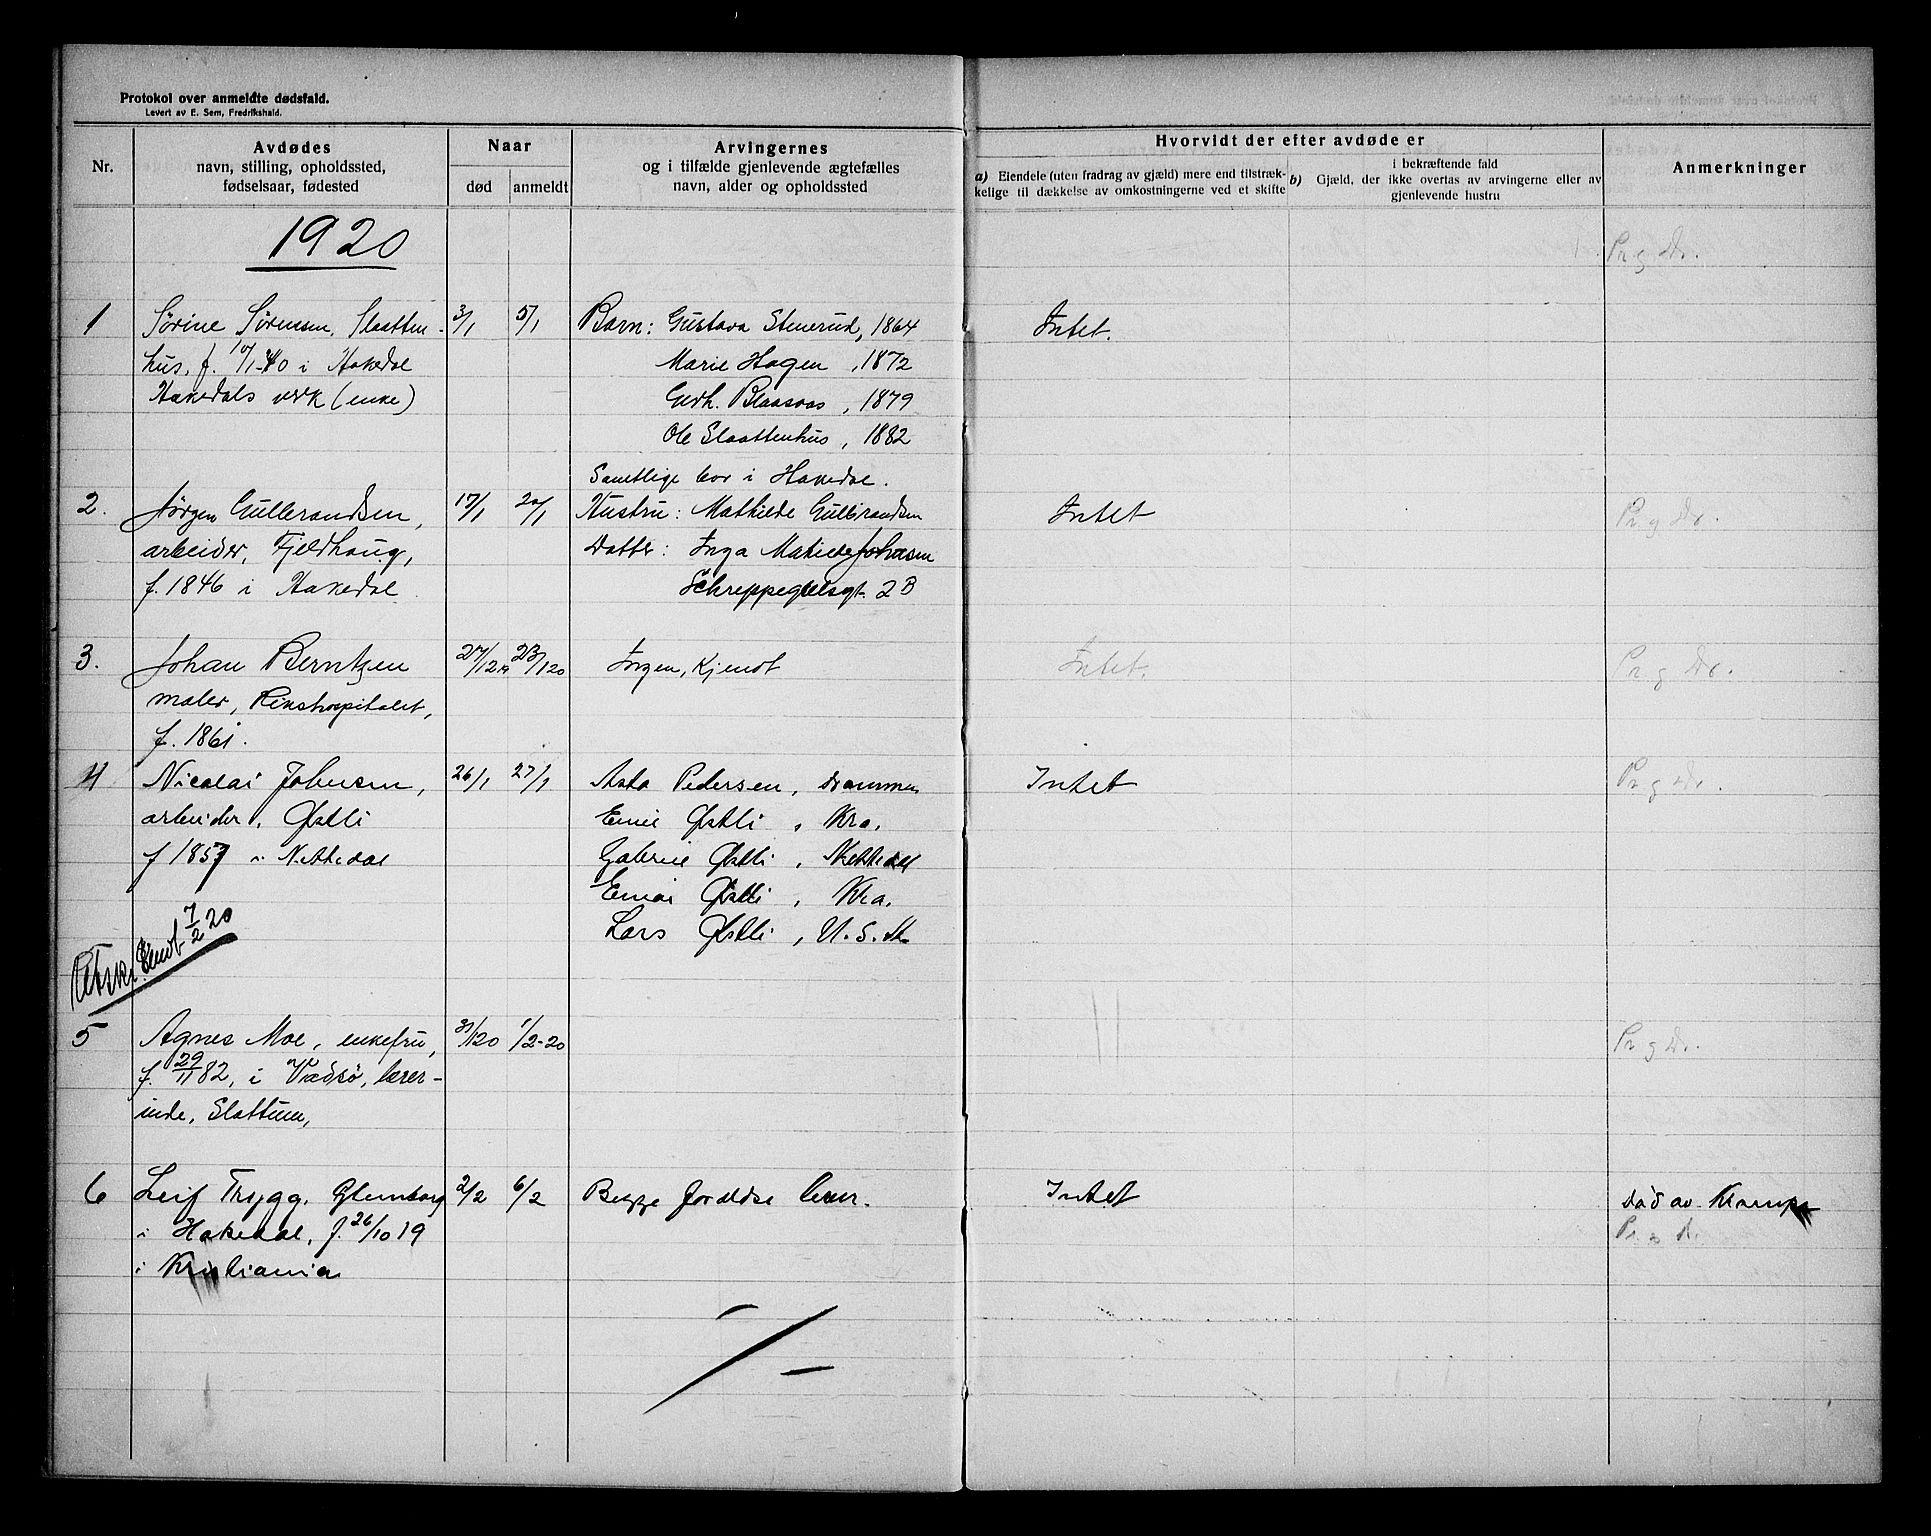 Protokol over anmeldte dødsfald.
Levert av E. Sem, Fredrikshald.
Nr.
Avdødes
navn, stilling, opholdssted,
fødselsaar, fødested
Naar
død
anmeldt
Arvingernes
og i tilfælde gjenlevende ægtefælles
navn, alder og opholdssted
Hvorvidt der efter avdøde er
a) Eiendele (uten fradrag av gjæld) mere end tilstræk-
kelige til dækkelse av omkostningerne ved et skifte
i bekræftende fald
b) Gjæld, der ikke overtas av arvingerne eller av
gjenlevende hustru
Anmerkninger
1920
Pr g Dr.
1 Sørine Sørensen, Slaatten- 3/1 5/1 Barn: Gustava Stenerud, 1864 Intet.
hus, f. 10/1-40 i Hakedal Marie Hagen, 1872
Hakedals verk (enke) Gerh. Blaasaas, 1879
Ole Slaattenhus, 1882
Samtlige bor i Hakedal.
2. Jørgen Gulbrandsen, 17/1 20/1 Hustru: Mathilde Gulbrandsen Intet Pr. g Dr.
arbeider, Fjeldhaug, Datter: Inga Matilde Johnsen
f. 1846 i Hakedal Schreppegrelsgt. 2B
3. Johan Berntzen 27/12 19 23/1 20 Ingen, kjendt Intet. Pr. g Dr.
maler, Rikshospitalet,
f. 1861.
4 Nicolai Johnsen, 26/1 27/1 Asta Pedersen, Drammen Intet Pr g Dr.
arbeider, Østli Emil Østli, Kra.
f 1857 i Nittedal Gabriel Østli, Nittedal
Østli, Kra.
Lars Østli, U.S.A.
7/2 20
5 Agnes Moe, enkefru, 31/1 20 1/2-20 Pr g Dr.
f. 29/11 82, i Vadsø, lærer-
inde, Slattum,
6 Leif Trygg, Glemborg 2/2 6/2 Begge foreldre lever. Intet Død av Krampe
i Hakedal, f. 26/10 19 Pr. g Dr.
i Kristiania